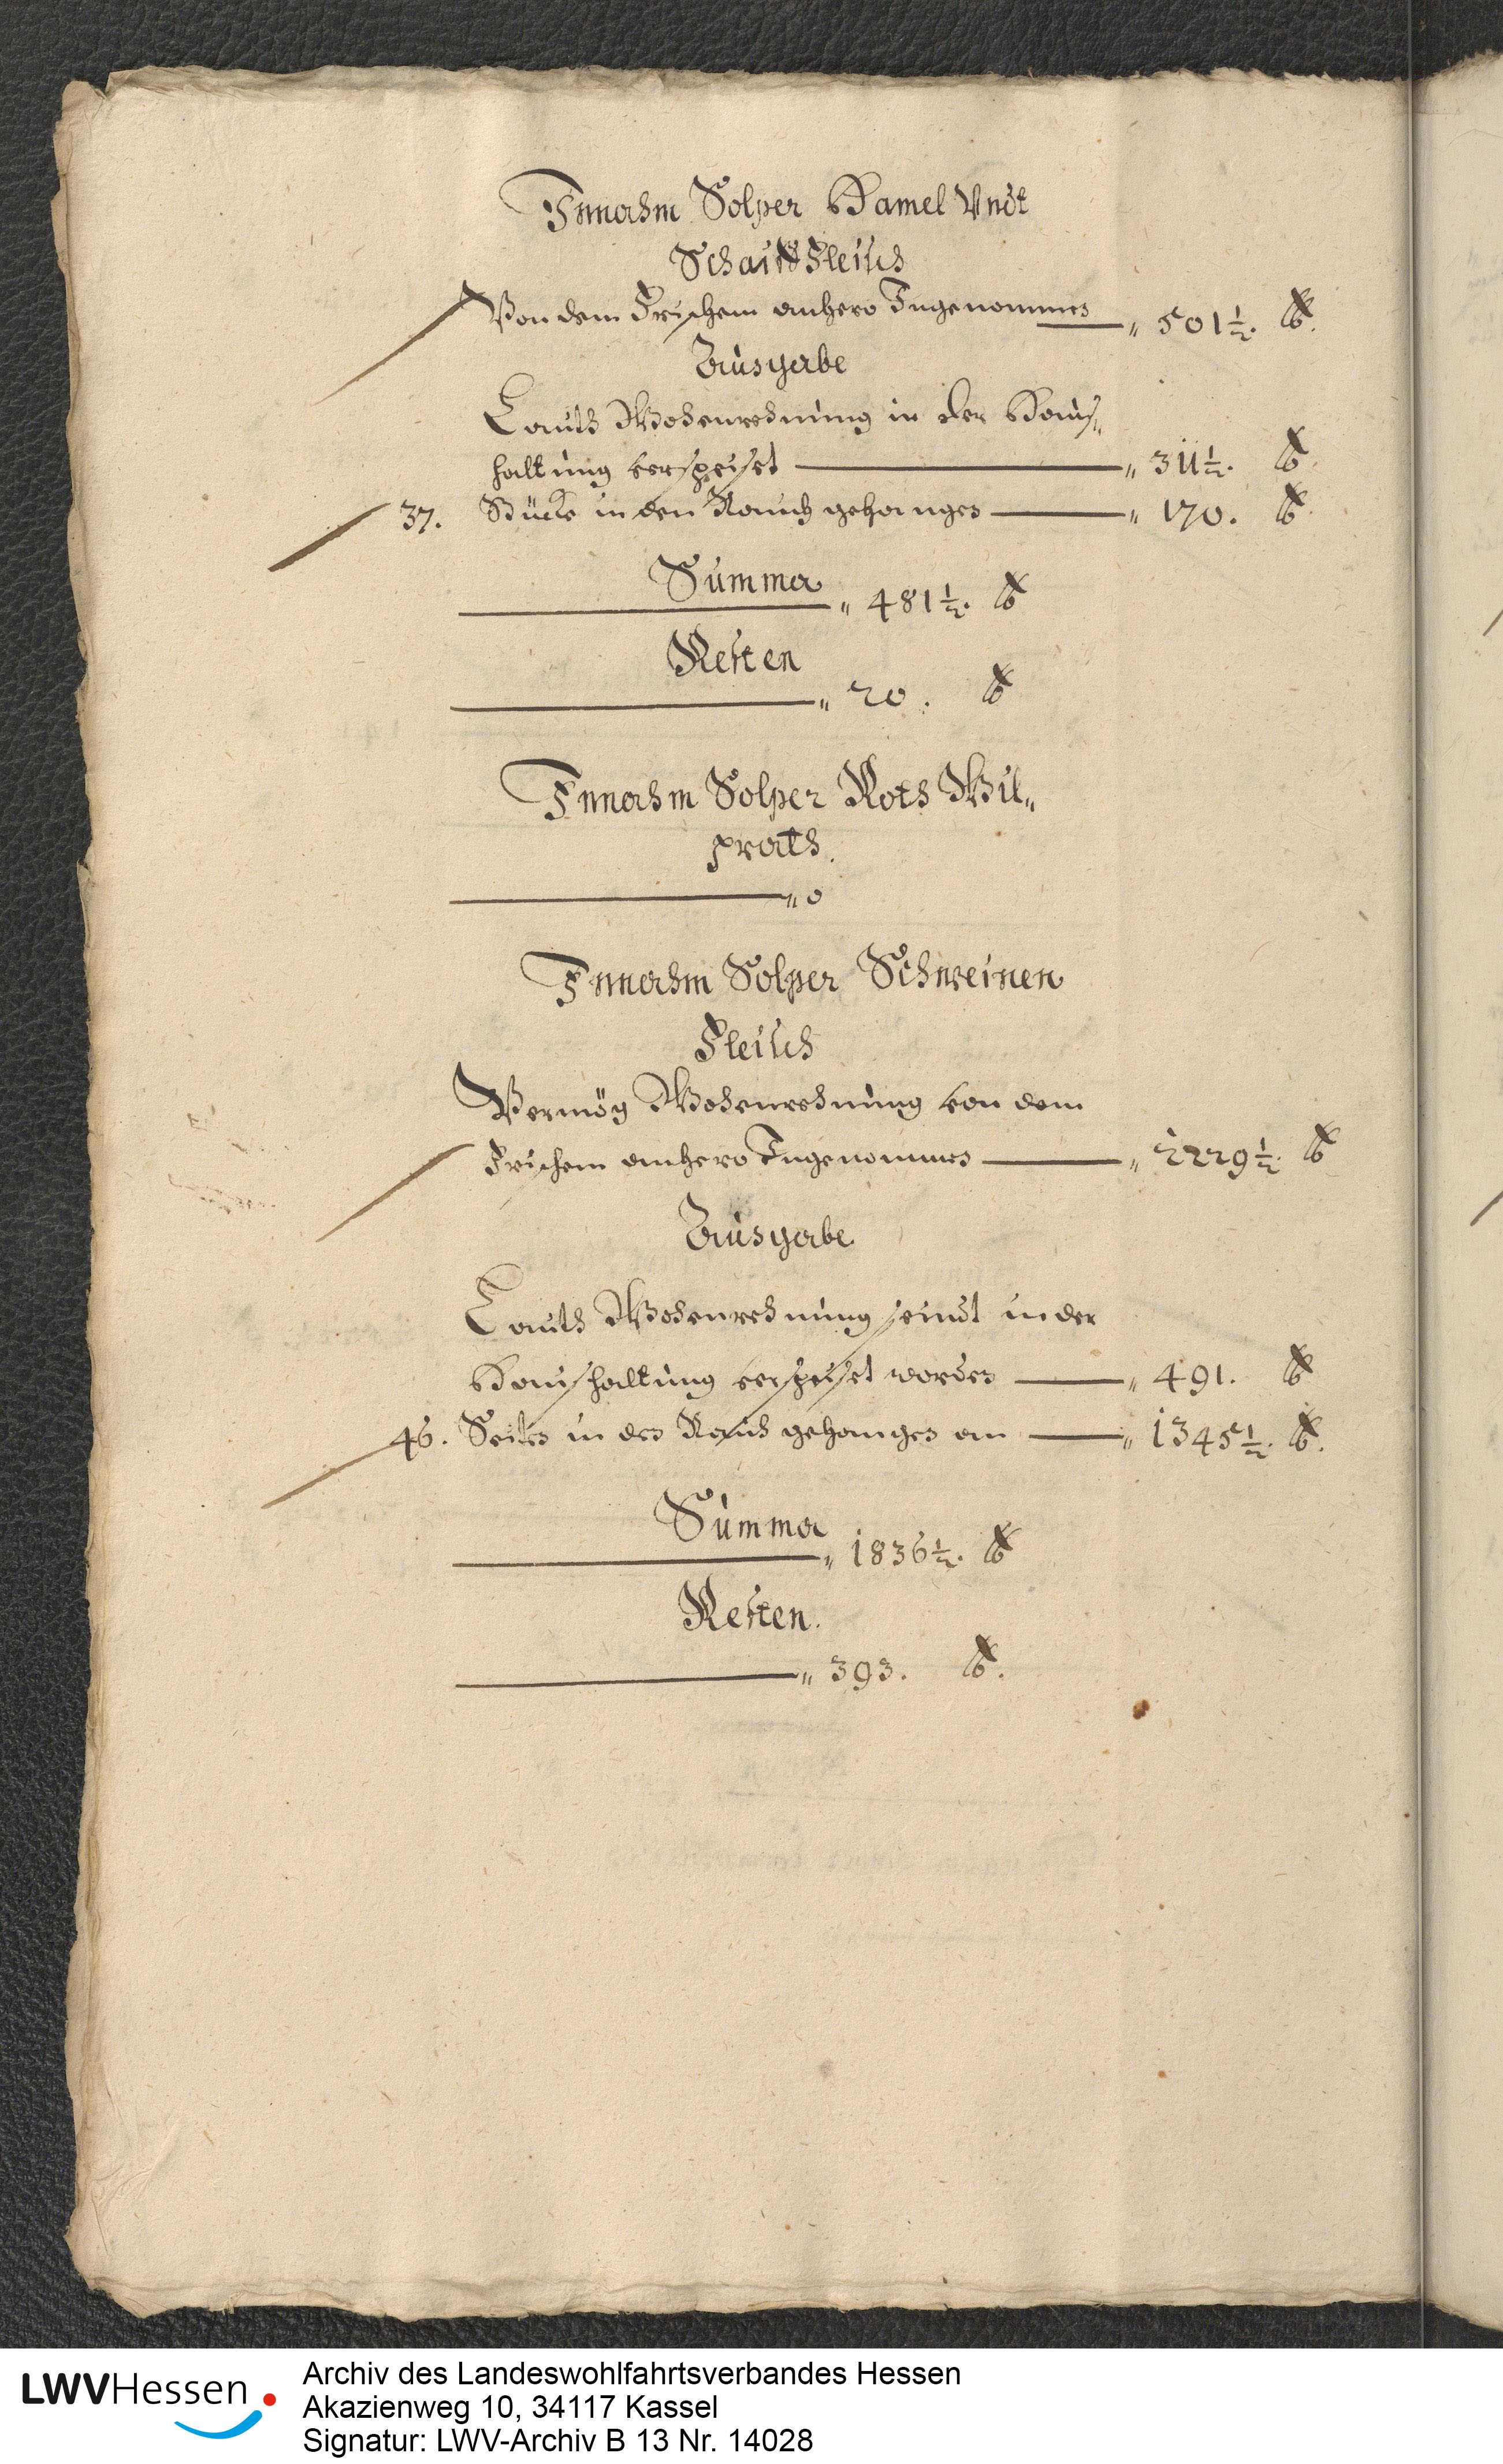 Innahm Solper Hamel Vndt
Schaffs Fleisch
Von dem Frischem anhero Ingenommen „ 501½. ℔.
Ausgabe
Lauth Wochenrechnung in der Haus„
haltung verspeiset „ 311½. ℔.
37. Stücke in den Rauch gehangen „ 170. ℔.
Summa „ 481½. ℔
Resten „ 20. ℔
Innahm Solper Roth Wil„
prath.
„ 0
Innahm Solper Schweinen
Fleisch
Vermög Wochenrechnung von dem
Frischem anhero Ingenommen „ 2229½. ℔
Ausgabe
Lauth Wochenrechnung seindt in der
Haushaltung verspeiset worden „ 491. ℔
46. Seiten in den Rauch gehangen an „ 1345½. ℔.
Summa „ 1836½. ℔
Resten.
„ 393. ℔.
LWVHessen
Archiv des Landeswohlfahrtsverbandes Hessen
Akazienweg 10, 34117 Kassel
Signatur: LWV-Archiv B 13 Nr. 14028